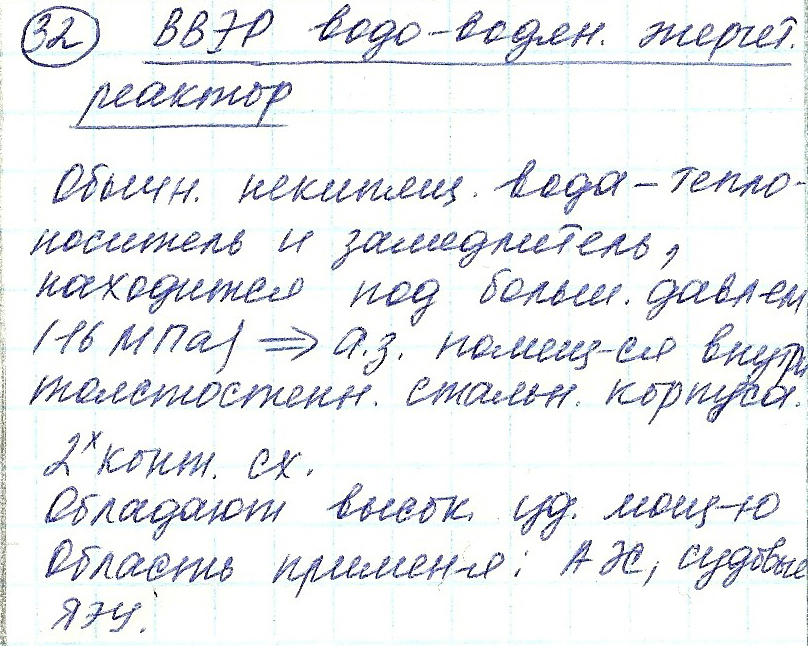 32 ВВЭР водо-водян. энергет.
реактор
Обычн. некипящ. вода – тепло-
носитель и замедлитель,
находится под больш. давлен
(16 МПа) ⇒ а.з. помещ-ся внутри
толстостенн. стальн. корпуса.
2ˣ конт. сх.
Обладают высок. уд. мощ-ю
Область примен-я: АЭС, судовые
ЯЭУ.